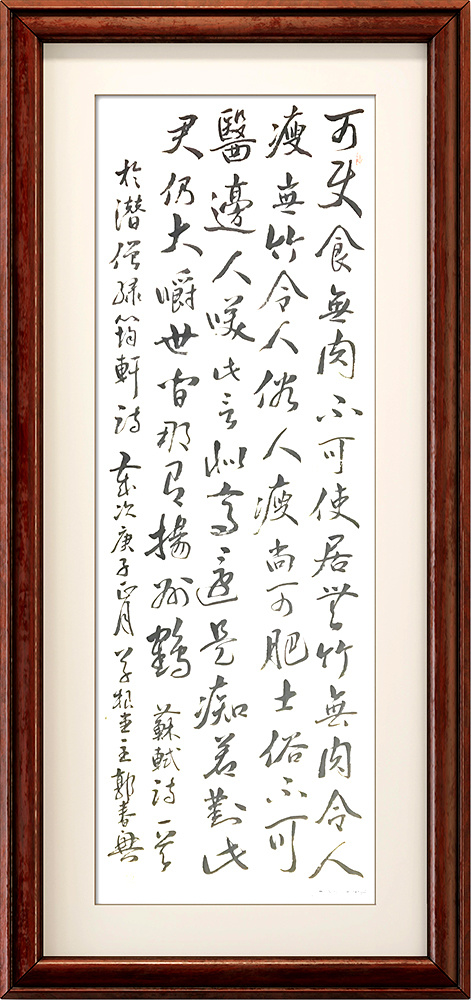 可使食無肉不可使居無竹無肉令人
瘦無竹令人俗人瘦尚可肥士俗不可
醫邊人咲此言似高還是痴若對此
君仍大嚼世間那有揚州鶴 蘇軾詩一首
於潛僧綠筠軒詩 歲次庚子正月 草根主郭春興